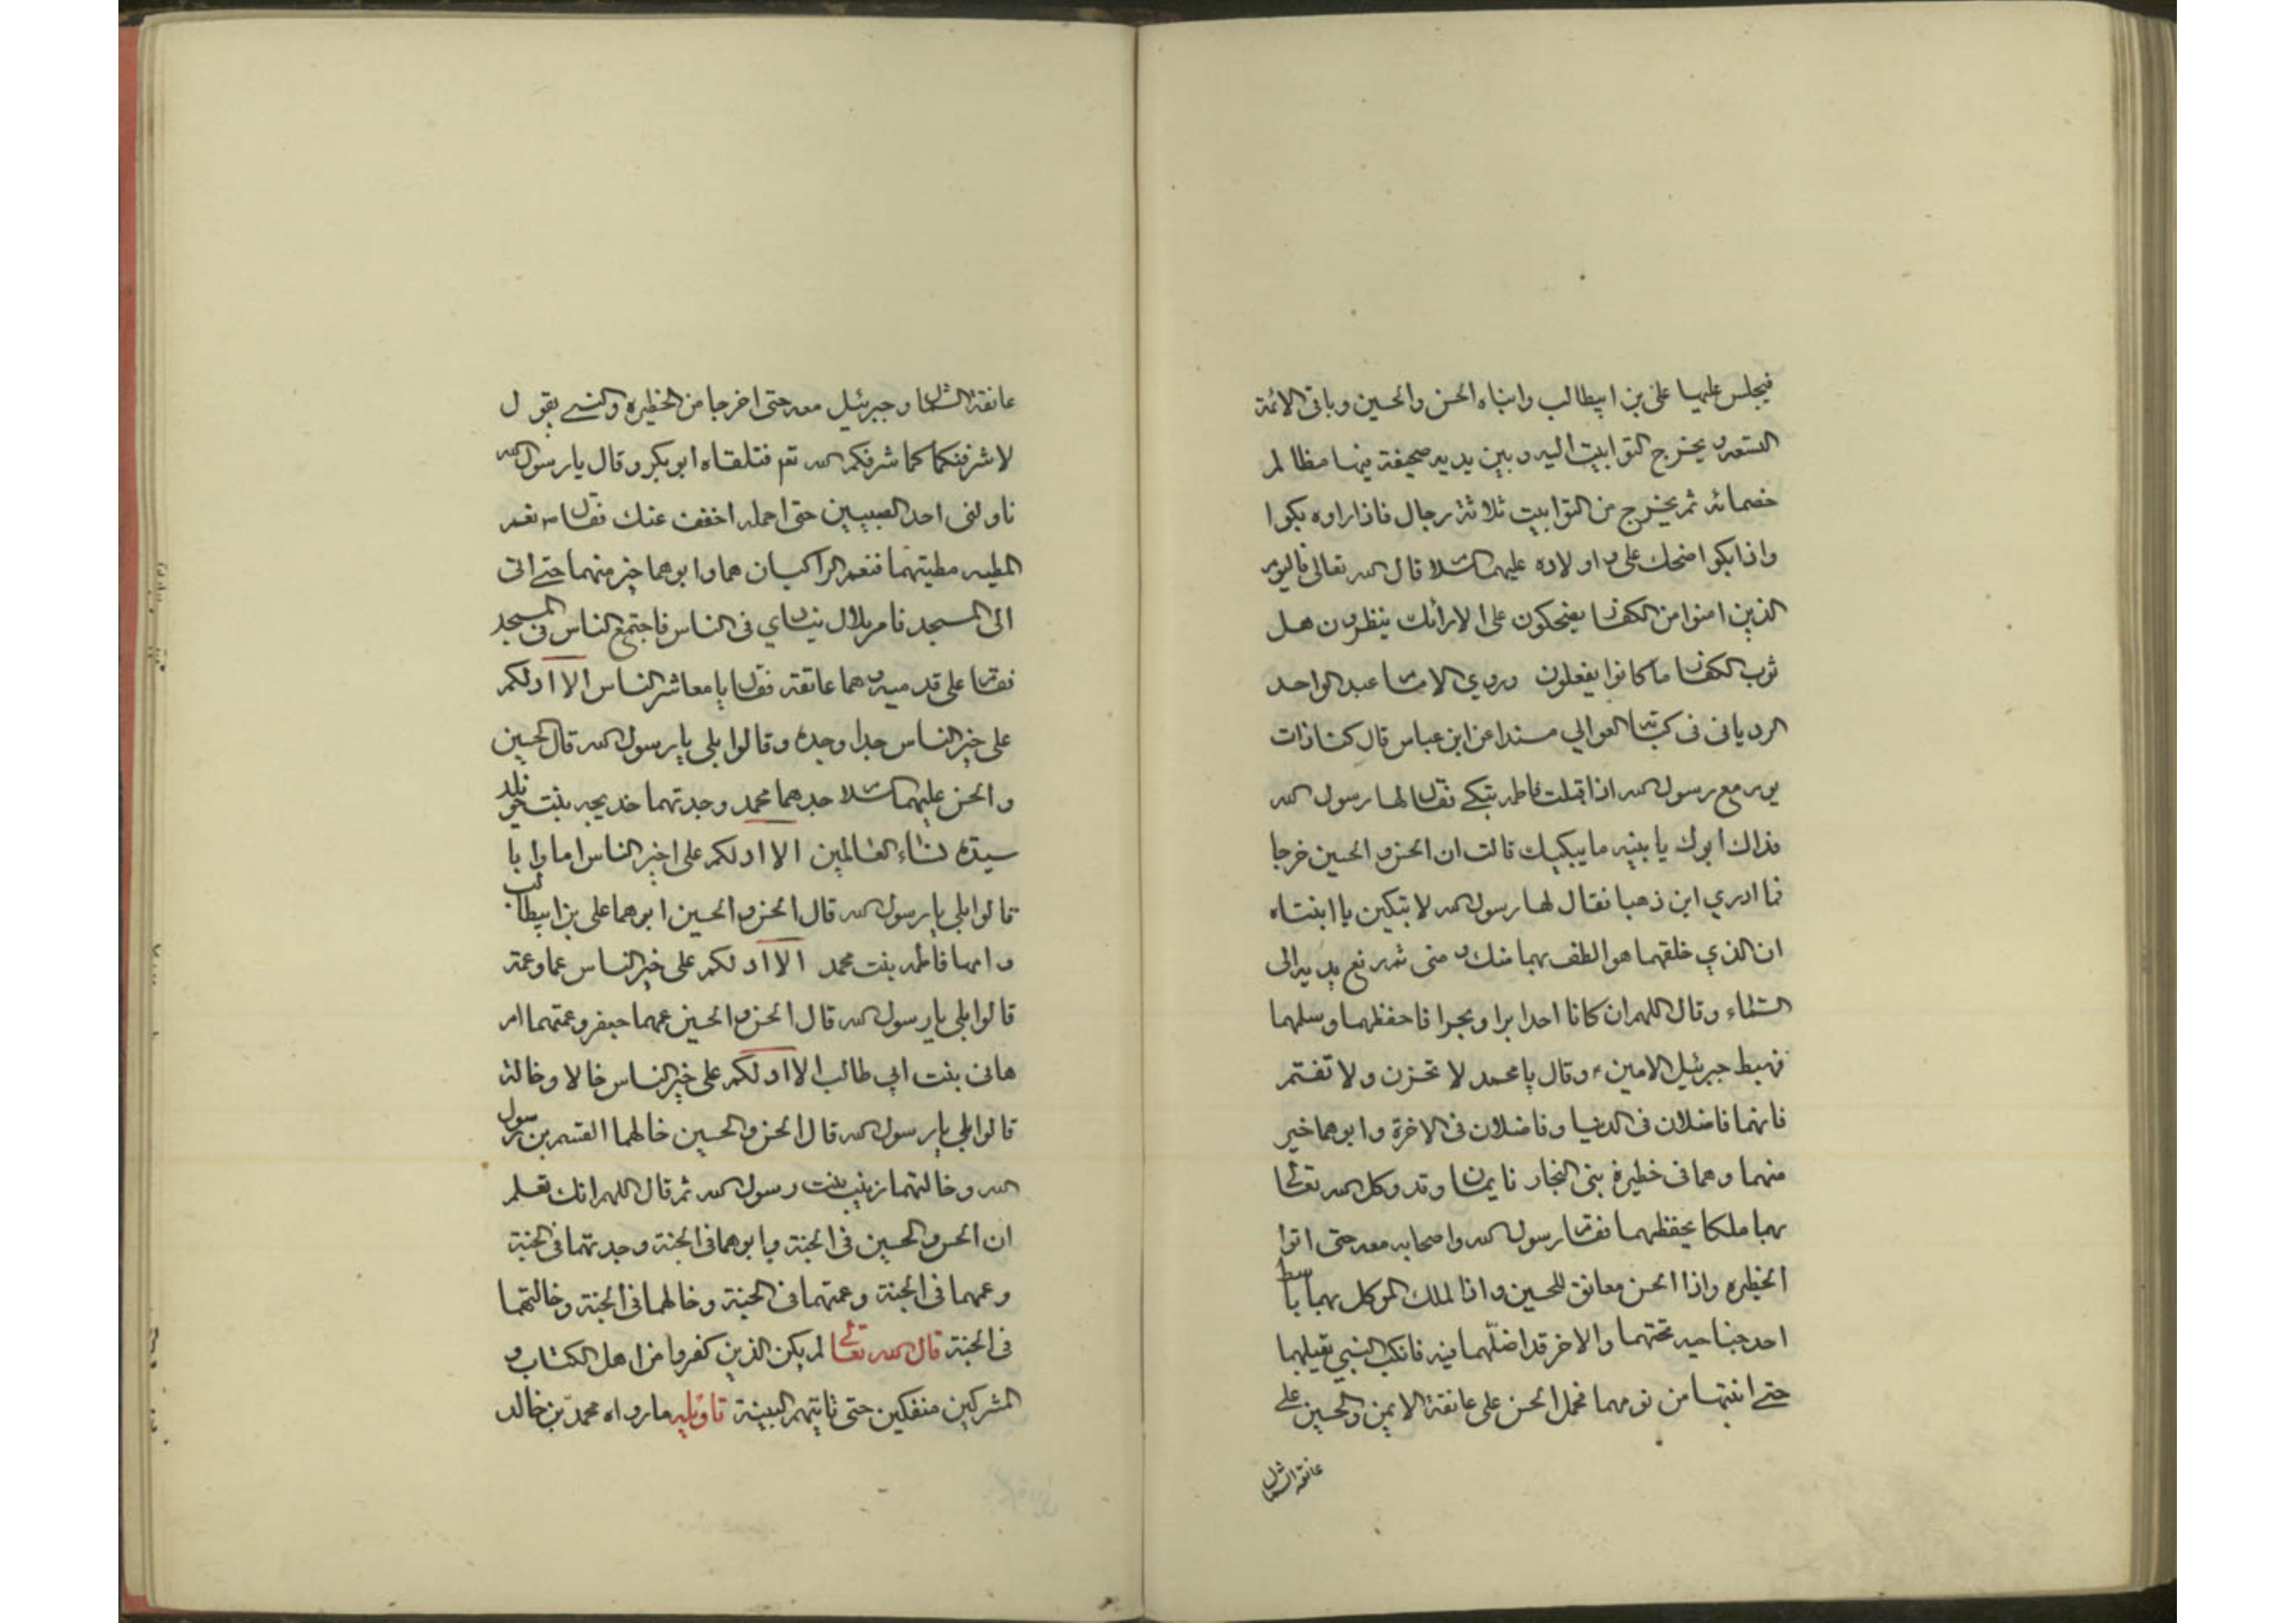 فيجلس عليها على بن ابيطالب وابناه الحسن والحسين وباقى الائمة
التسعه ويخرج التوابيت اليه وبين يديه صحيفة فيها مظالم
خصمائه ثم يخرج من التوابيت ثلاثة رجال فاذا راوه بكوا
واذا بكوا اضحك على و اولاده عليهم السلام قال الله تعالى فاليوم
الذين امنوا من الكفار يضحكون على الارائك ينظرون هل
ثوب الكفار ما كانوا يفعلون وروي الامام عبد الواحد
الرديانى فى كتاب العوالي مسندا عن ابن عباس قال كنا ذات
يوم مع رسول الله اذا اقبلت فاطمه تبكے فقال لها رسول الله
فداك ابوك يا بنيه ما يبكيك قالت ان الحسن و الحسين خرجا
فما ادري اين ذهبا فقال لها رسول الله لا تبكين يا ابنتاه
ان الذي خلقهما هو الطف بهما منك و منى ثم رفع يديه الى
السماء وقال اللهم ان كانا اخذا برا و بحرا فاحفظهما وسلمهما
فهبط جبرئيل الامين ء وقال يا محمد لا تحزن ولا تغتم
فانهما فاضلان فى الدنيا وفاضلان فى الاخرة و ابوهما خير
منهما وهما فى خطيرة بنى النجار نايمان وقد وكل الله تعالى
بهما ملكا يحفظهما فقام رسول الله واصحابه معه حتى اتوا
الخطيره واذا الحسن معانق للحسين واذا الملك الموكل بهما باسط
احد جناحيه تحتهما والاخر قد اضلّهما فيه فانكب النبي يقبلهما
حتے انتبها من نومهما فحمل الحسن على عانقة الايمن والحسين على
عانقة الشمال
عانقة الشمال و جبرئيل معه حتى اخرجا من الخطيره والنبے يقول
لاشرفنكما كما شرفكم الله تع فتلقاه ابوبكر و قال يا رسول الله
ناولنى احد الصبيين حتى احمله اخفف عنك فقال ص نعم
المطيه مطيتهما فنعم الراكبان هما و ابوهما خير منهما حتے اتى
الى المسجد فامر بلال ينادي فى الناس فاجتمع الناس فى المسجد
فقام على قدميه وهما عانقة فقال يا معاشر الناس الا ادلكم
على خير الناس جدا وجده وقالوا بلى يا رسول الله قال الحسين
والحسن عليهما السلام جدهما محمد وجدتهما خديجه بنت خويلد
سيدة نساء العالمين الا ادلكم على اخير الناس اما وابا
قالوا بلى يا رسول الله قال الحسن و الحسين ابوهما على بن ابيطالب
و امهما فاطمه بنت محمد الا ادلكم على خير الناس عما وعمة
قالوا بلى يا رسول الله قال الحسن و الحسين عمهما جعفر وعمتهما ام
هانى بنت ابي طالب الا ادلكم على خير الناس خالا وخالة
قالوا بلى يا رسول الله قال الحسن والحسين خالهما القسم بن رسول
الله وخالتهما زينب بنت رسول الله ثم قال اللهم انك تعلم
ان الحسن والحسين فى الجنة وابوهما فى الجنة وجدتهما فى الجنة
وعمهما فى الجنة وعمتهما فى الجنة وخالهما فى الجنة وخالتهما
فى الجنة قال الله تعالى لم يكن الذين كفروا من اهل الكتاب و
المشركين منفكين حتى تاتيهم البينة تاويله مارواه محمد بن خالد